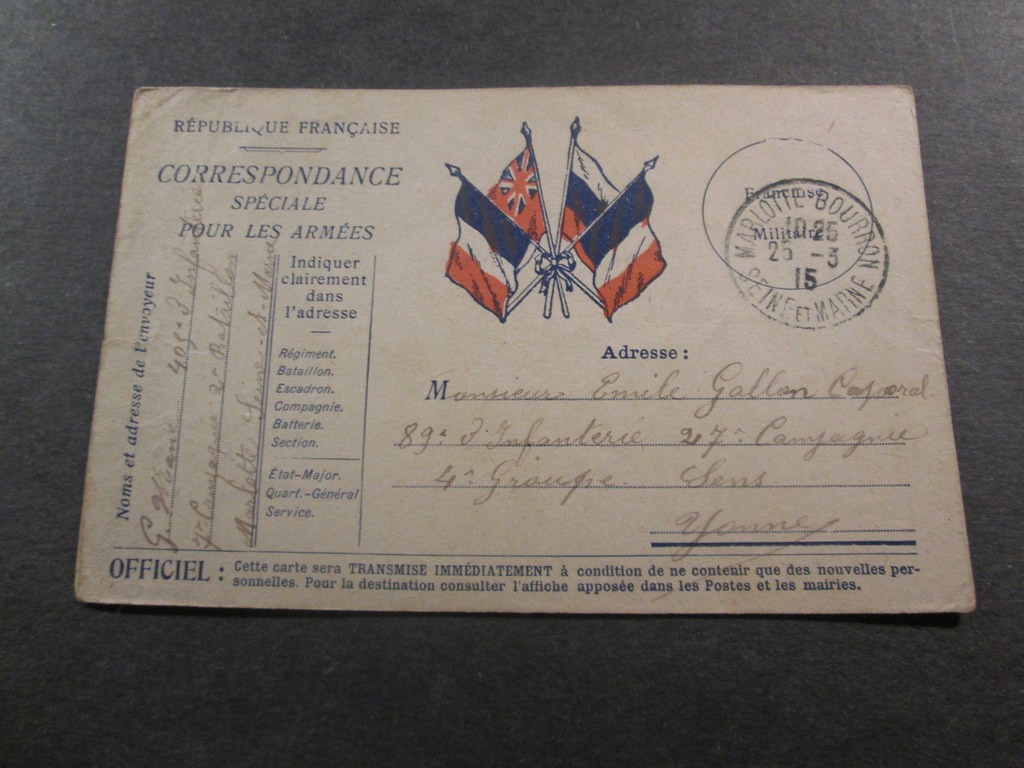 RÉPUBLIQUE FRANÇAISE
CORRESPONDANCE
SPÉCIALE
POUR LES ARMÉES
Indiquer
clairement
dans
l'adresse
Régiment.
Bataillon.
Escadron.
Compagnie.
Batterie.
Section.
État-Major.
Quart.-Général
Service.
Noms et adresse de l'envoyeur
G. 409e d'Infanterie
7e Compagnie 2e Bataillon
Marlotte Seine-et-Marne
Franchise
Militaire
MARLOTTE-BOURRON
10 25
25 -3
15
SEINE ET MARNE
Adresse :
Monsieur Emile Gallon Caporal
89e d'Infanterie 27e Compagnie
4e Groupe. Sens
Yonne
OFFICIEL : Cette carte sera TRANSMISE IMMÉDIATEMENT à condition de ne contenir que des nouvelles per-
sonnelles. Pour la destination consulter l'affiche apposée dans les Postes et les mairies.